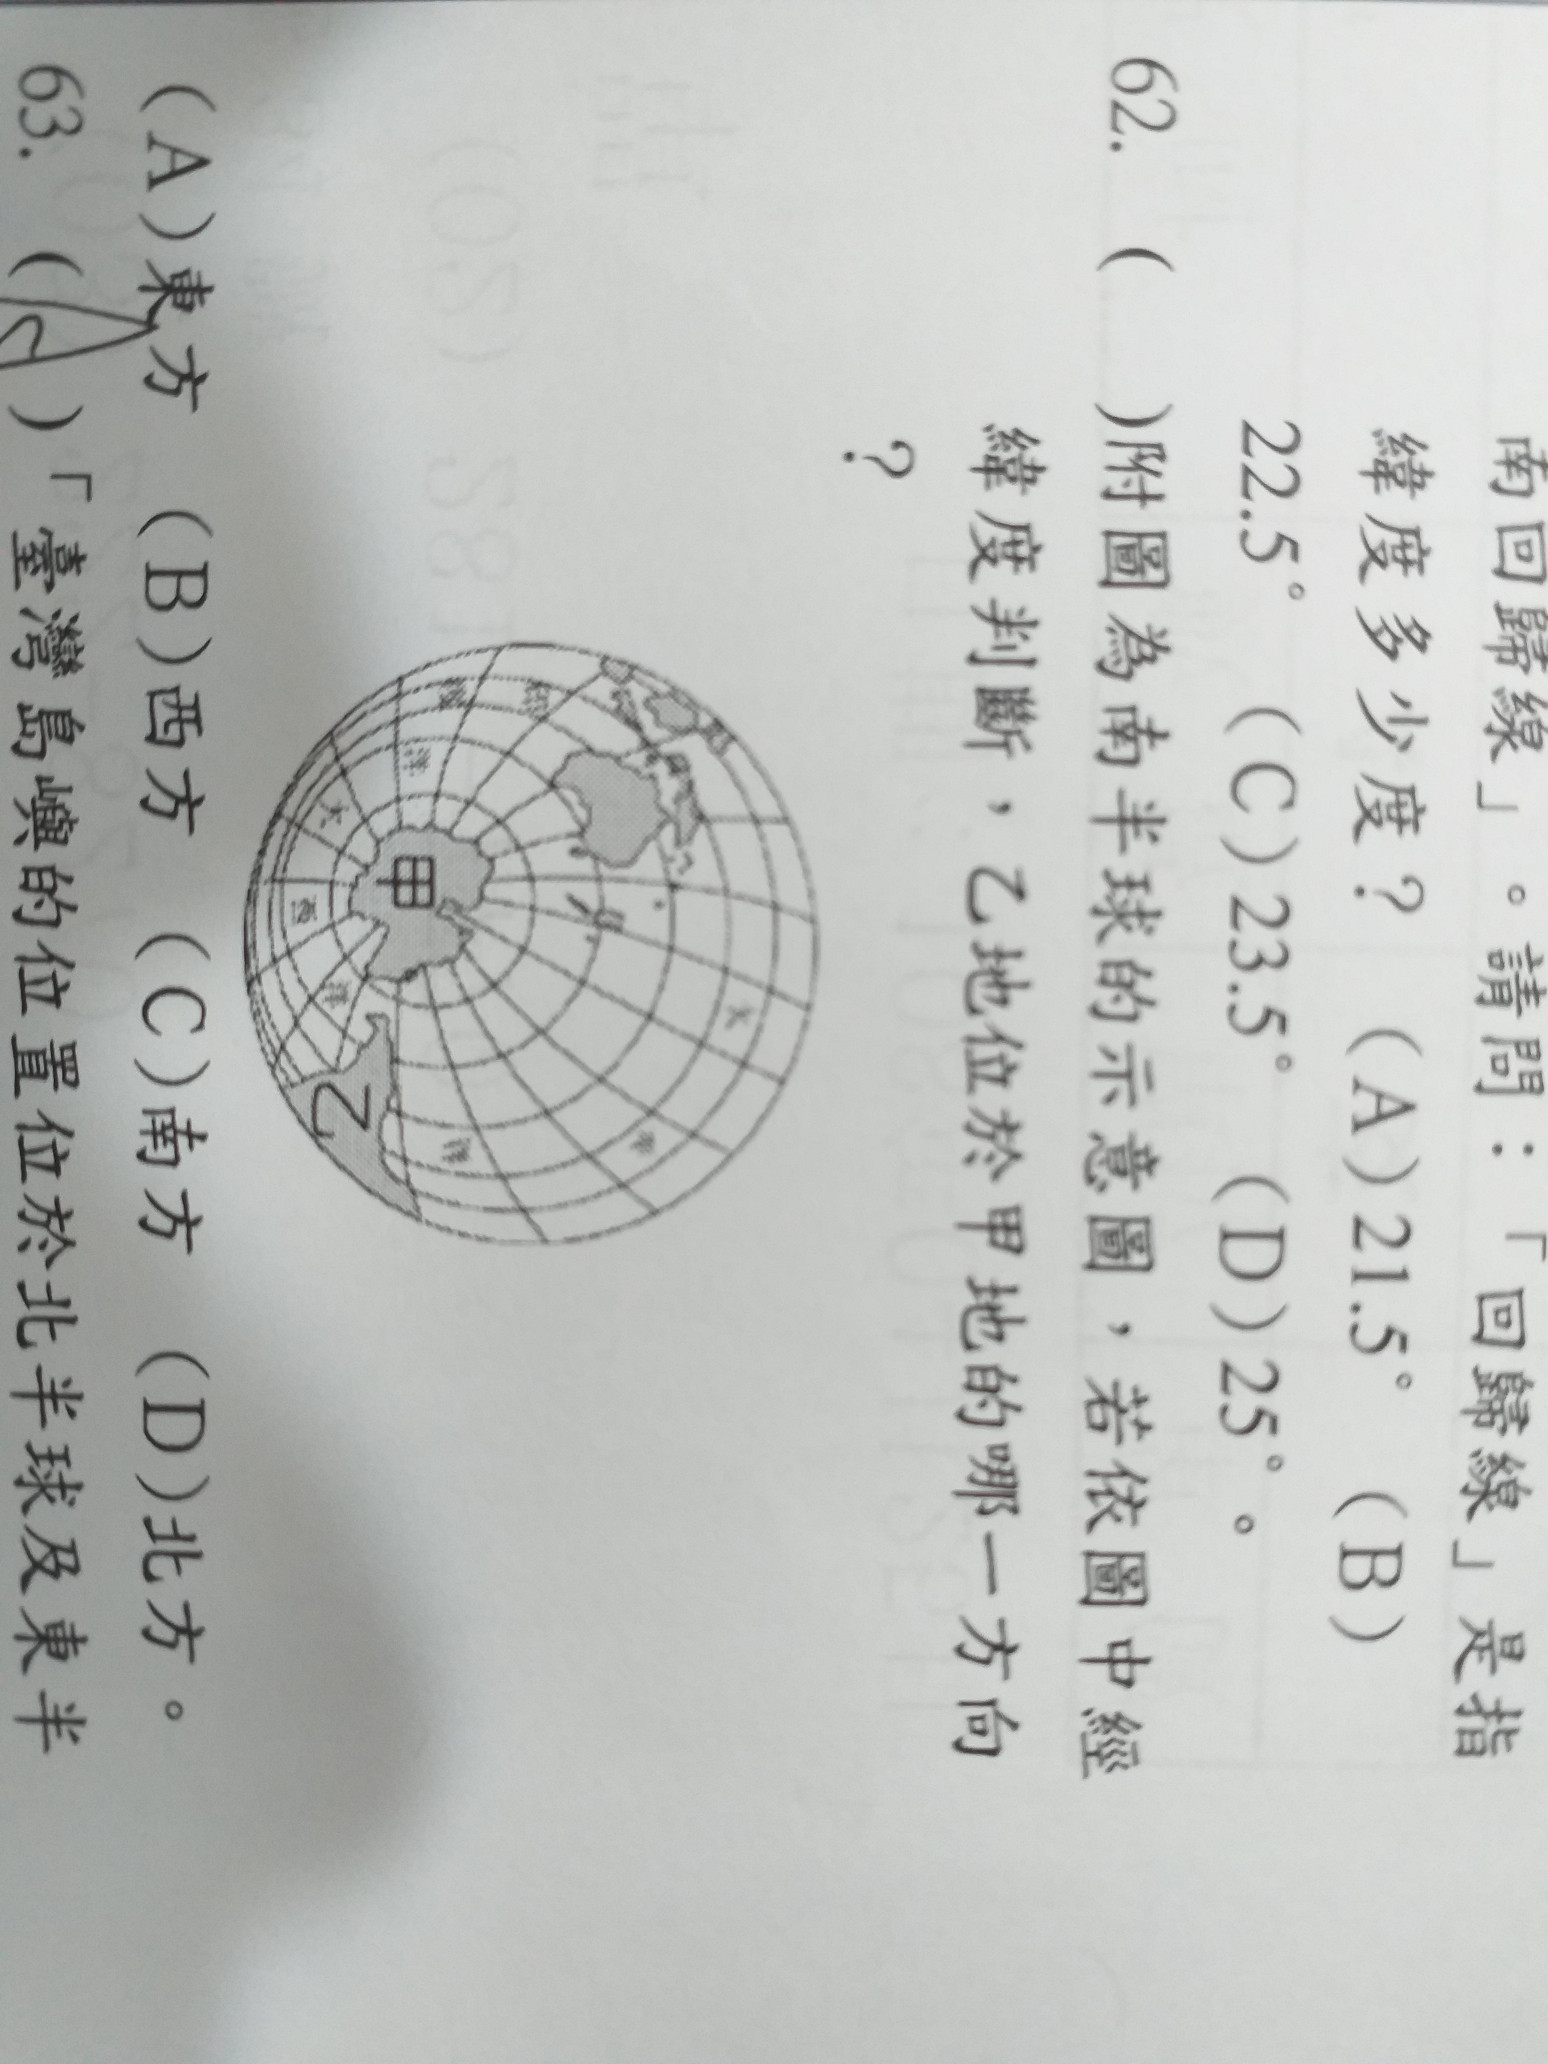 南回歸線」。請問：「回歸線」是指
緯度多少度？ (A)21.5° (B)
22.5° (C)23.5° (D)25°。
62. ( )附圖為南半球的示意圖，若依圖中經
緯度判斷，乙地位於甲地的哪一方向
？
洋
大
甲
西
洋
乙
大
平
洋
(A)東方 (B)西方 (C)南方 (D)北方。
63. ( )「臺灣島嶼的位置位於北半球及東半